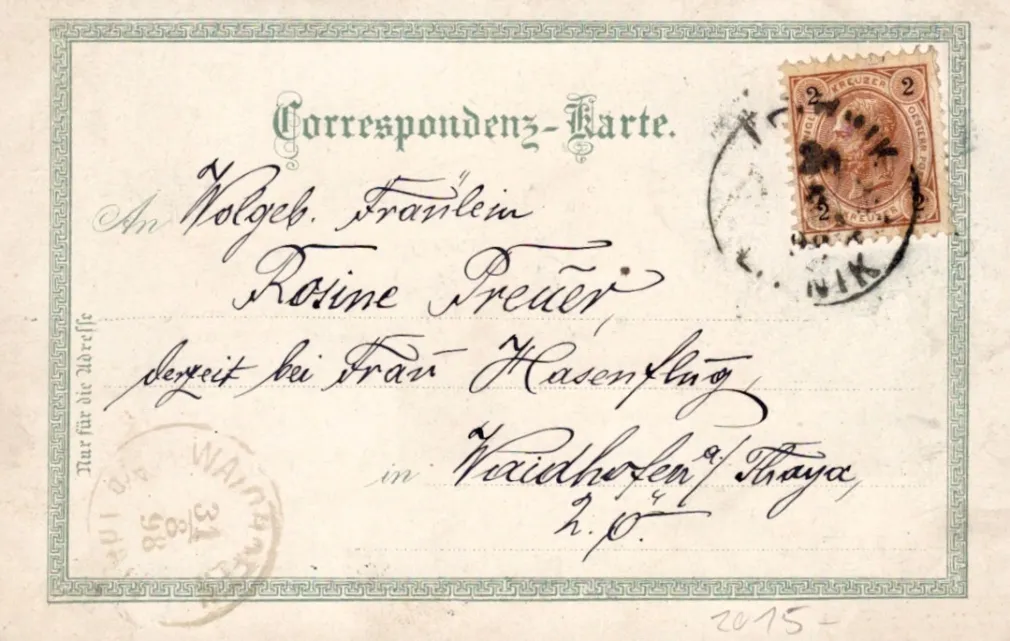 Correspondenz-Karte.
2 KREUZER 2
2 KREUZER 2
NIK
98
An Wolgeb. Fräulein
Rosine Preuer,
derzeit bei Frau Hasenflug,
in Waidhofen a/ Thaya,
N. Ö.
Nur für die Adresse
31
8
98
2015-